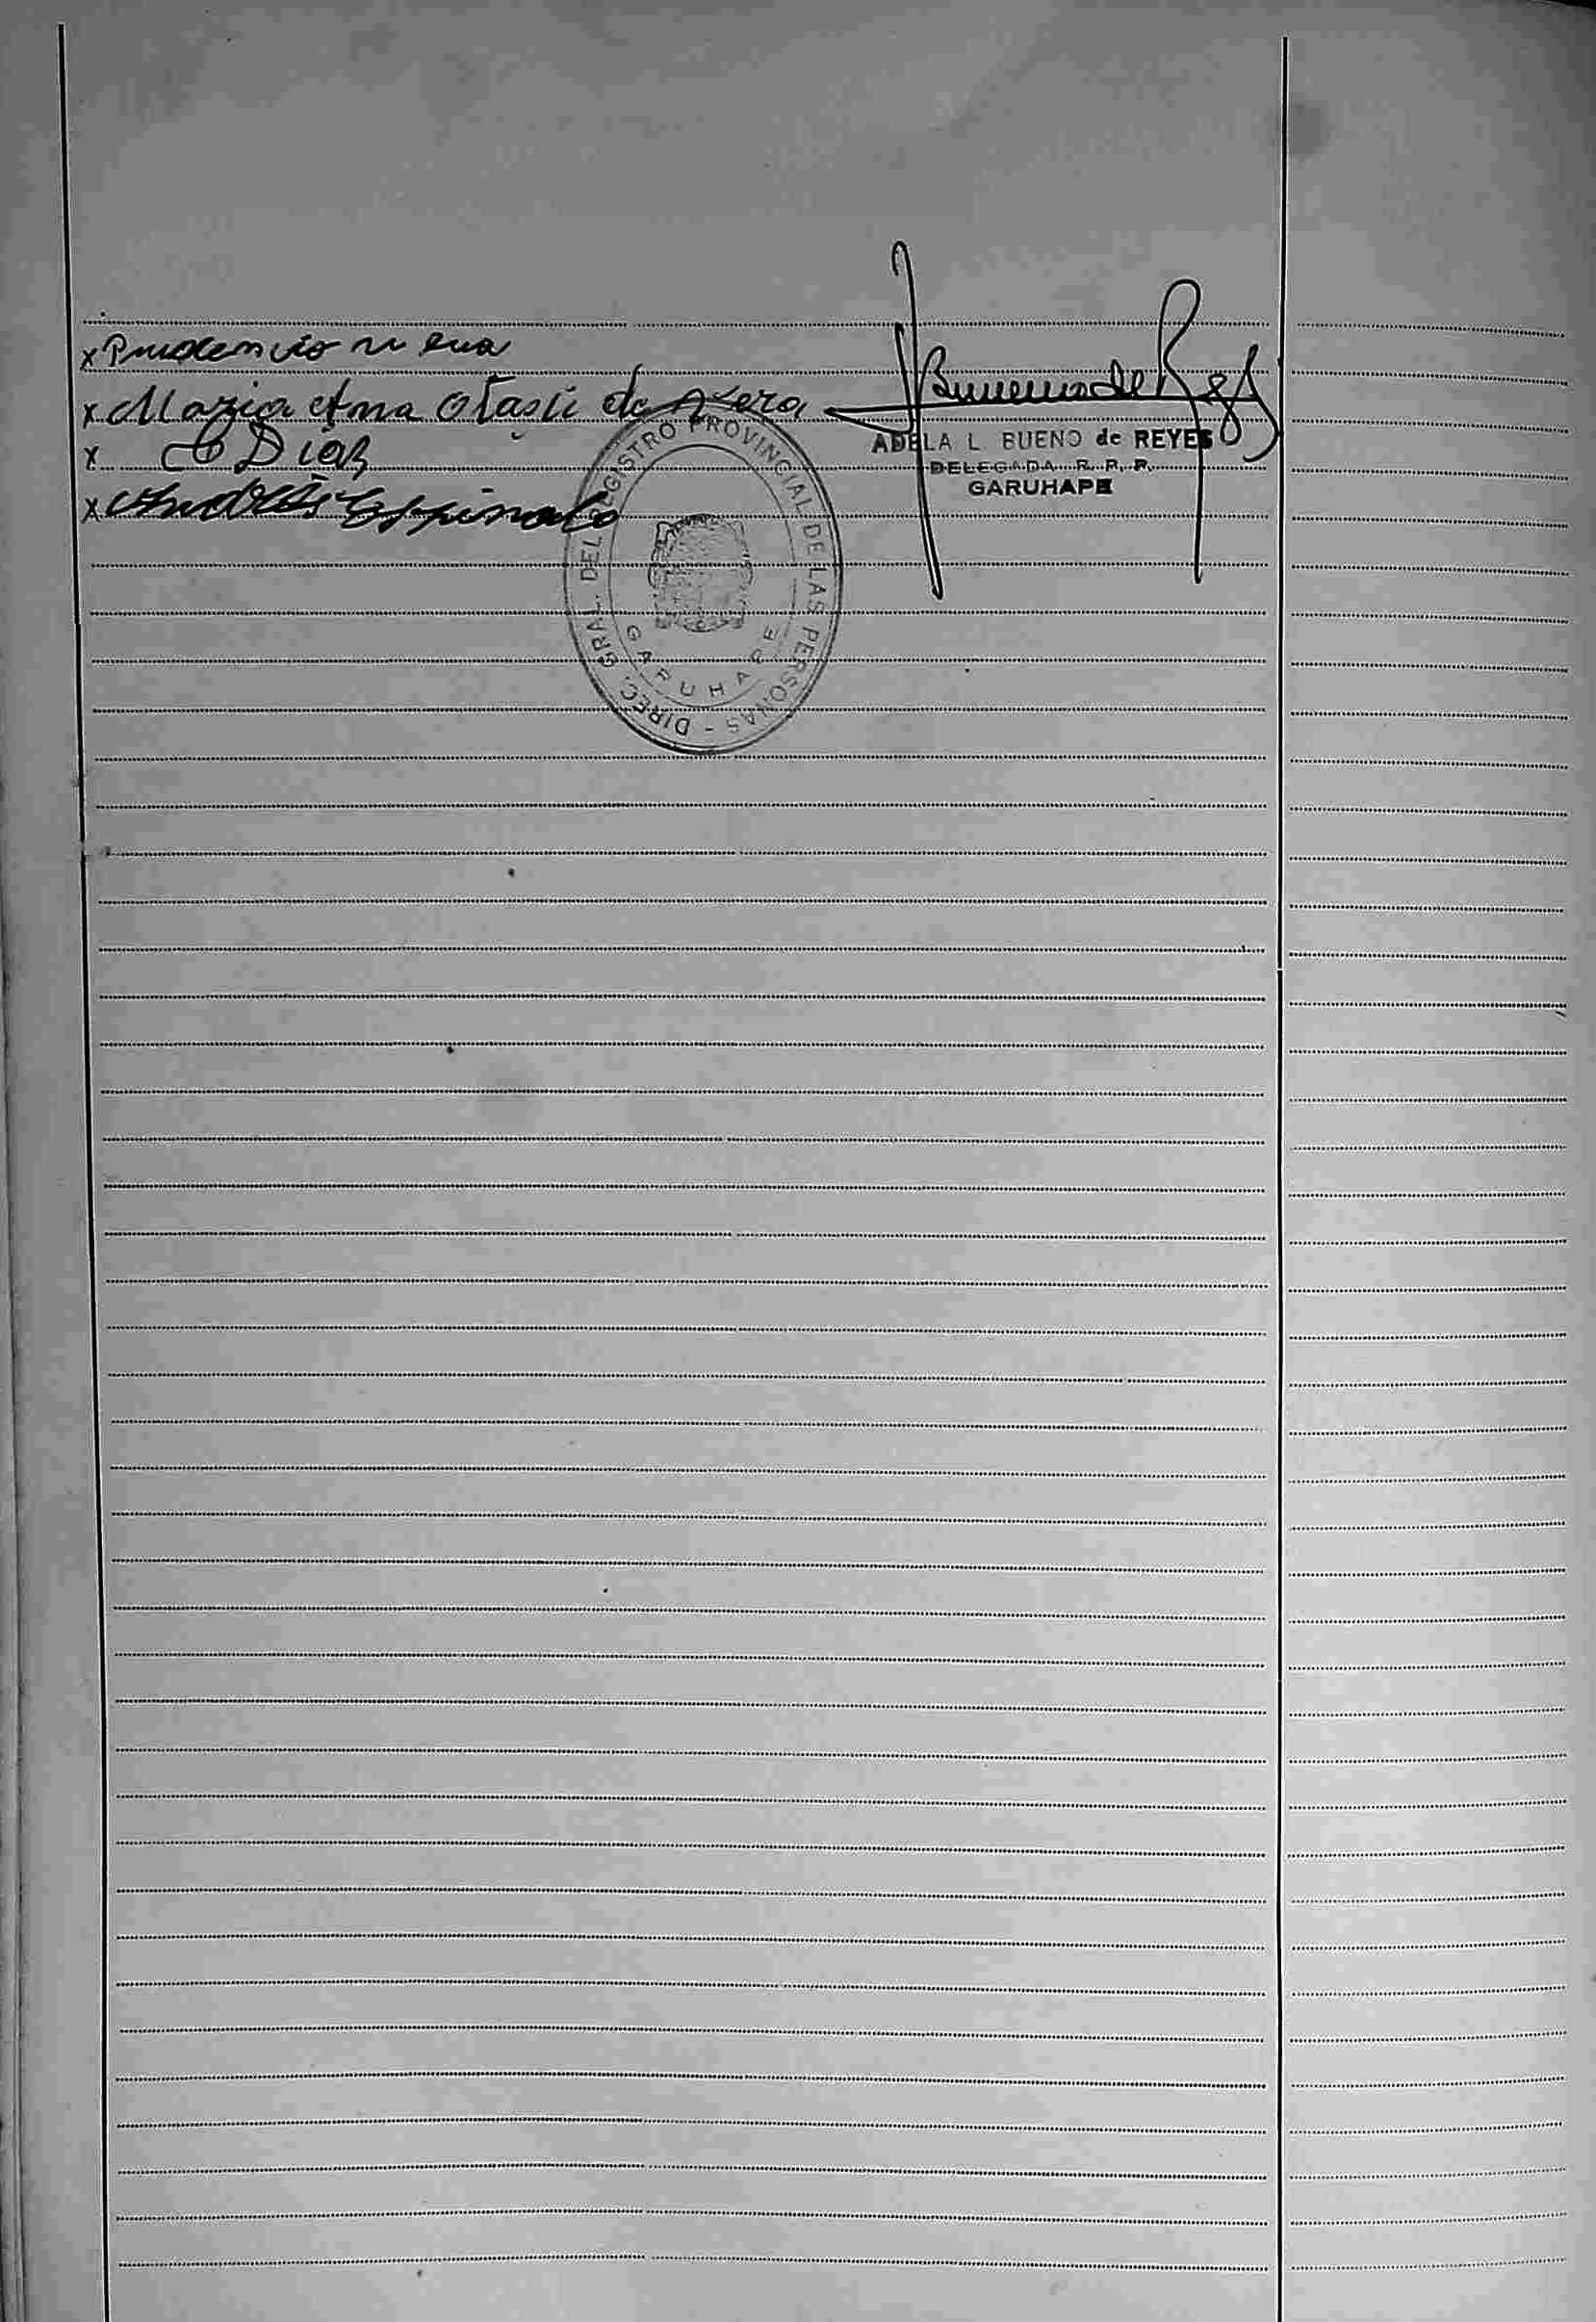 x Prudencio Vera
x Maria Ana Otasú de Vera
x C Diaz
x Andrés Espinola
Bueno de Reyes
ADELA L. BUENO de REYES
DELEGADA R. P. P.
GARUHAPE
DIREC. GRAL. DEL REGISTRO PROVINCIAL DE LAS PERSONAS -
GARUHAPE